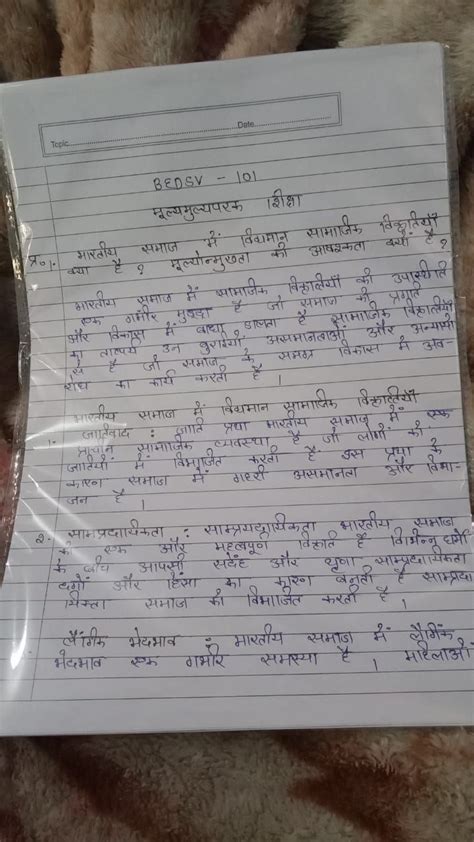 Topic
Date
BEDSV - 101
मूल्यमुल्यपरक शिक्षा
प्र०1. भारतीय समाज में विद्यमान सामाजिक विकृतियाँ
क्या है ? मूल्योन्मुखता की आवश्यकता क्यों है ?
भारतीय समाज में सामाजिक विकृतियों की उपास्थिति
एक गंभीर मुद्दा है जो समाज की प्रगति
और विकास में बाधा डालता है सामाजिक विकृतियों
का तात्पर्य उन बुराइयों असमानताओं और अन्यायों
से है जो समाज के समग्र विकास में अव-
रोध का कार्य करती है ।
भारतीय समाज में विद्यमान सामाजिक विकृतियाँ
1. जातिवाद : जाति प्रथा भारतीय समाज में एक
प्राचीन सामाजिक व्यवस्था है जो लोगों को
जातियों में विभाजित करती है उस प्रथा के
कारण समाज में गहरी असमानता और विभा-
जन है ।
2. साम्प्रदायिकता : साम्प्रदायिकता भारतीय समाज
की एक और महत्वपूर्ण विकृति है विभिन्न धर्मो
के बीच आपसी संदेह और घृणा साम्प्रदायिकता
दंगों और हिंसा का कारण बनती है साम्प्रदा
यिकता समाज को विभाजित करती है ।
लैंगिक भेदभाव : भारतीय समाज में लैंगिक
भेदभाव एक गंभीर समस्या है । महिलाओं